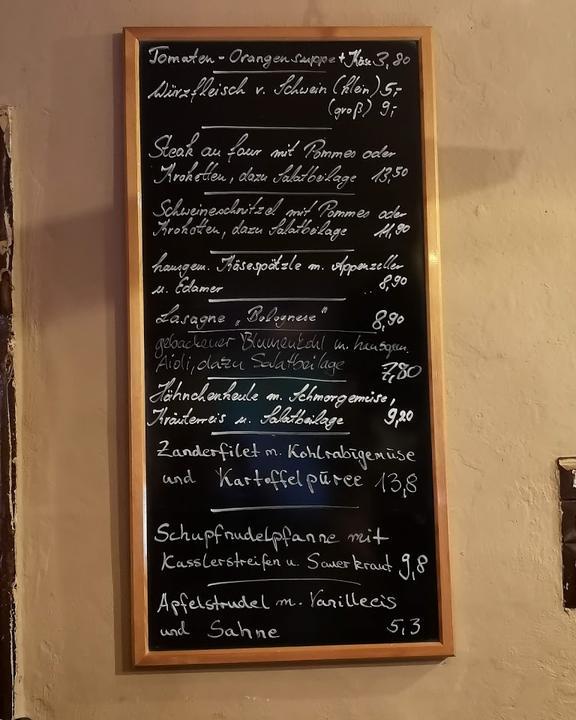 Tomaten-Orangensuppe + Käse 3,80
Würzfleisch v. Schwein (klein) 5,-
(groß) 9,-
Steak au four mit Pommes oder
Kroketten, dazu Salatbeilage 13,50
Schweineschnitzel mit Pommes oder
Kroketten, dazu Salatbeilage 11,90
hausgem. Käsespätzle m. Appenzeller
u. Edamer 8,90
Lasagne "Bolognese" 8,90
gebackener Blumenkohl m. hausgem.
Aioli, dazu Salatbeilage 7,80
Hähnchenkeule m. Schmorgemüse,
Kräuterreis u. Salatbeilage 9,20
Zanderfilet m. Kohlrabigemüse
und Kartoffelpüree 13,8
Schupfnudelpfanne mit
Kasslerstreifen u. Sauerkraut 9,8
Apfelstrudel m. Vanilleeis
und Sahne 5,3